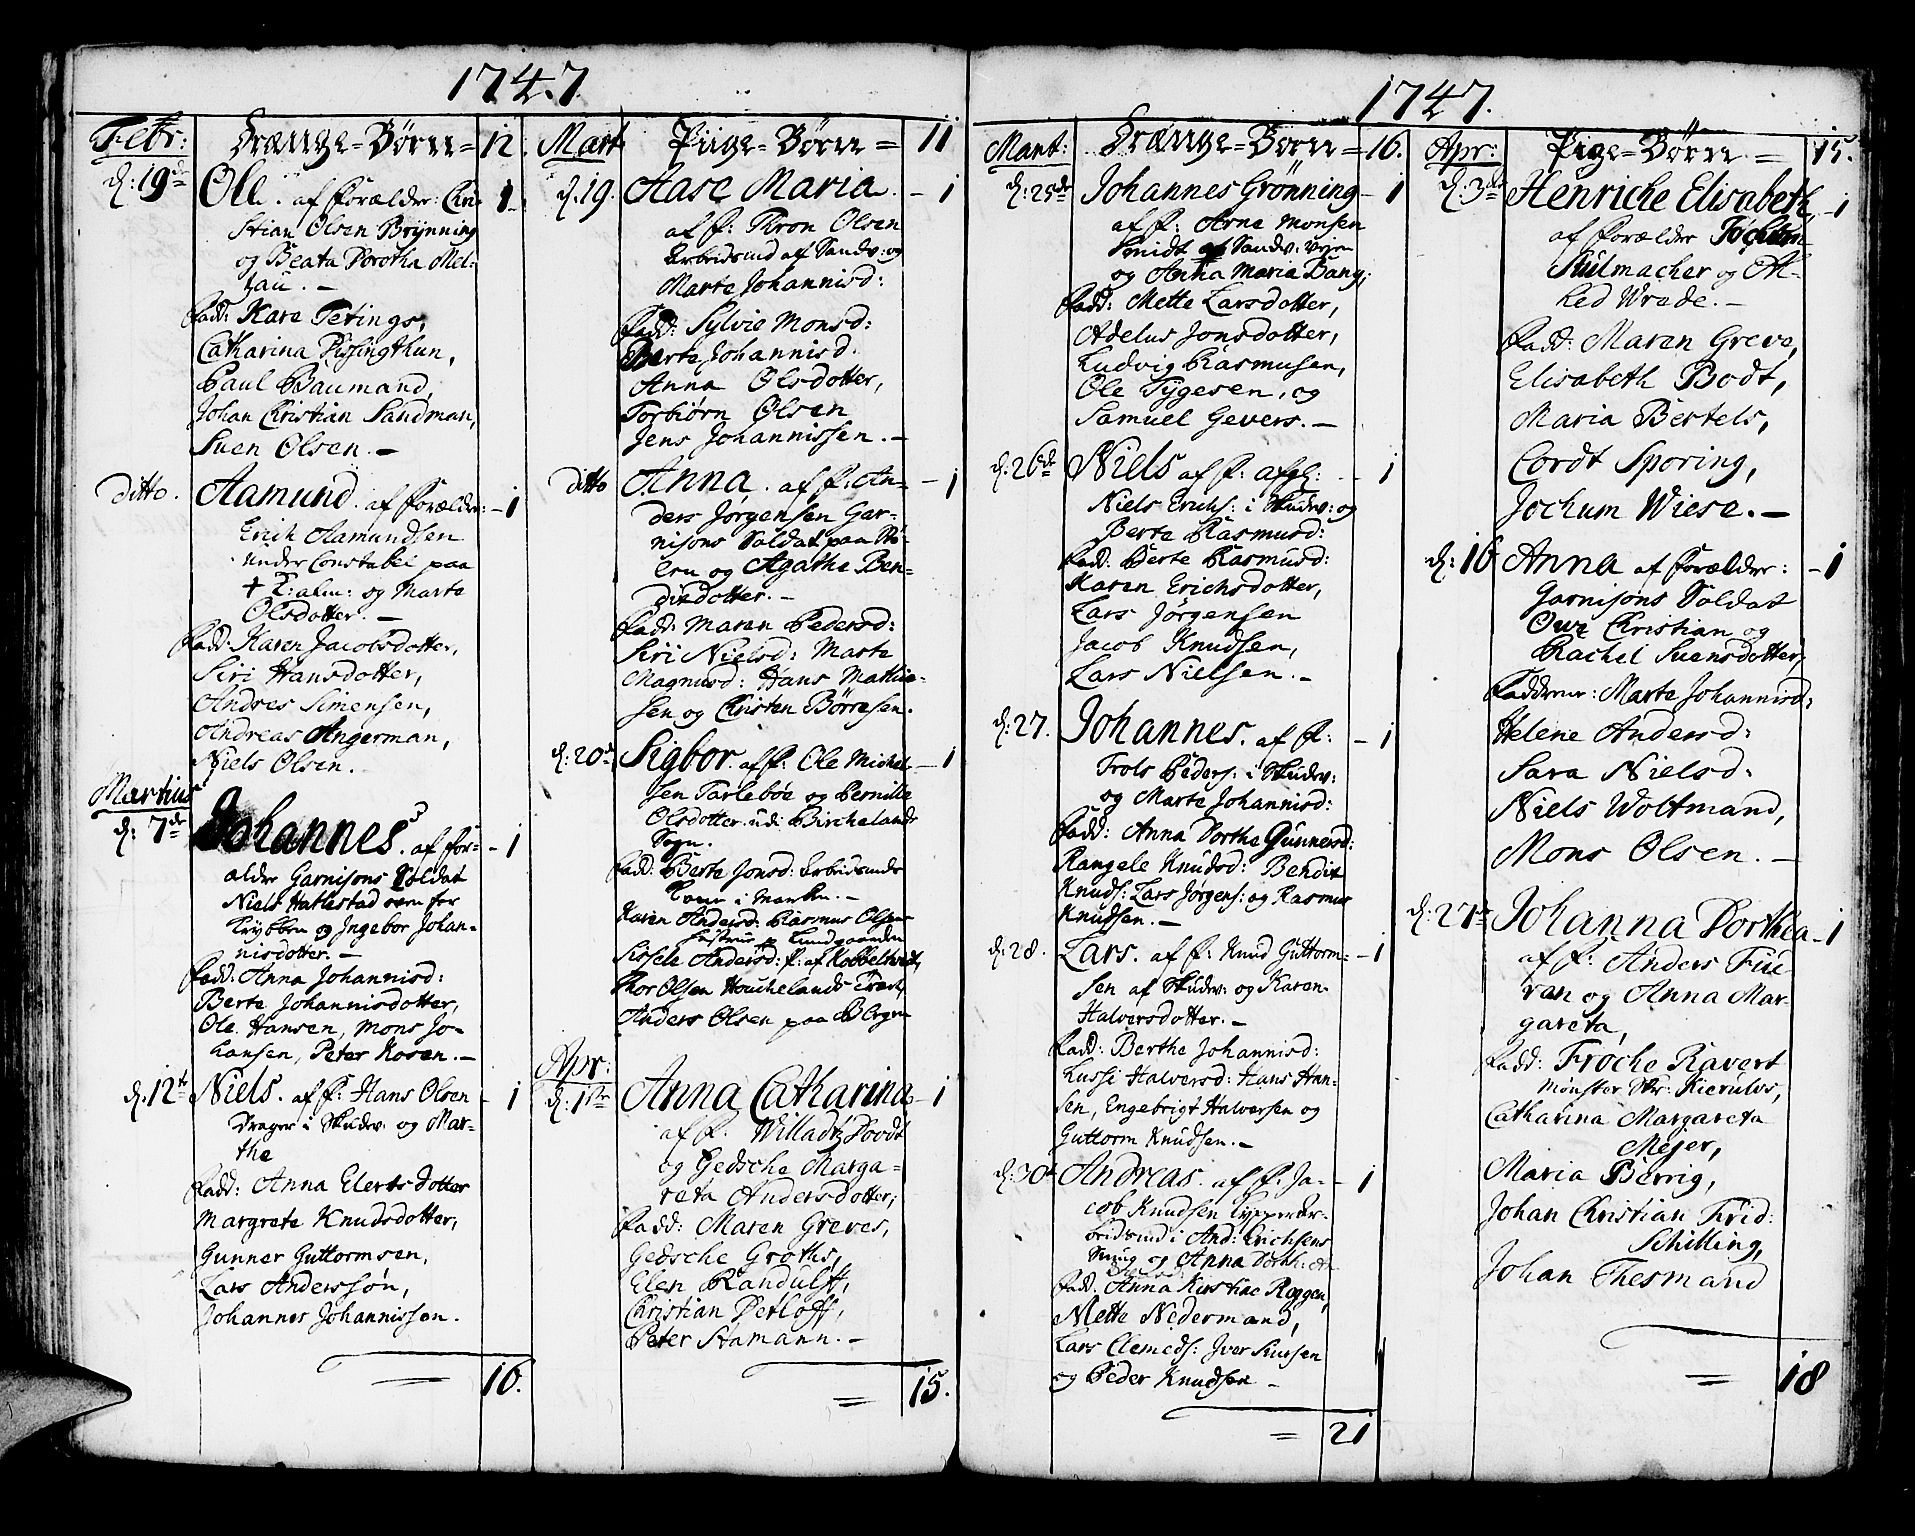 1747.
Febr: Drænge-Børn= 12.
d: 19de Ole. af Forældr: Chri- 1
stian Olsen Brynning
og Beata Dorotha Mel-
tzau. –
Fadd: Kare Tetings,
Catharina Pissingthun,
Paul Baumand,
Johan Christian Sandman,
Suen Olsen. –
ditto. Aamund. af Forældr: – 1
Erich Aamundsen
under Constabel paa
og Marta
Olsdotter. –
Fadd: Karen Jacobsdotter,
Siri Hansdotter,
Andres Simensen,
Andreas Angerman,
Niels Olsen.
Martius
d: 7de Johannes. af for- – 1
ældre Garnisons Soldat
Niels Hatlestad
og Ingebor Johan-
nisdotter. –
Fadd: Anna Johannisd:
Berte Johannisdotter,
Ole Hansen, Mons Jo-
hansen, Peter Kosen. –
d: 12te Niels. af F: Hans Olsen – 1
Drager i Skudev: og Mar-
the
Fadd: Anna Elertsdotter
Margrete Knudsdotter,
Gunner Guttormsen,
Lars Anderssøn,
Johannes Johannissen.
= 16.
Mart Piige-Børn = 11
d: 19. Aase Maria. – 1
af F: Thron Olsen
Arbeidsmd af Sandv: og
Marte Johannisd:
Fadd: Sylvie Monsd:
Berte Johannisd.
Anna Olsdotter,
Torbiørn Olsen
Jens Johannissen. –
ditto Anna. af F: An- – 1
ders Jørgensen Gar-
nisons Soldat paa
og Agathe Ben-
ditdotter. –
Fadd: Maren Pedersd:
Siri Nielsd: Marte
Magnusd: Hans Mathia-
sen og Christen Børresen.
d: 20de Sigbor. af F: Ole Michel- – 1
sen Tarlebøe og Pernille
Olsdotter. udi Birchelands
Sogn.
Fadd: Berte Jonsd: Arbeidsmds
Kone i Marken. –
Karen Andersd: Rasmus Olsens
Lundgaarden
Sissele Andersd: P: af Kobbeltvedt,
Thor Olsen Houchelands Træet,
Anders Olsen paa Bergen
Apr:
d: 1ste Anna Catharina – 1
af F. Willadtz Poodt
og Gedsche Marga-
reta Andersdotter,
Fadd: Maren Greves,
Gedsche Groths,
Elen Randulff,
Christian Detloff,
Peter Stamann. –
= 15.
1747.
Mart: Drænge-Børn = 16.
d: 25de Johannes Grönning – 1
af F: Arne Monsen
Smidt af Sandv: Veien
og Anna Maria Bang,
Fadd: Mette Larsdotter,
Adelus Jonsdotter,
Ludvig Rasmusen,
Ole Tygesen, og
Samuel Gevers. –
d: 26de Niels af F: afgl: – 1
Niels Erichs: i Skudev: og
Berte Rasmusd:
Fadd. Berte Rasmusd:
Karen Erichsdotter,
Lars Jørgensen
Jacob Knudsen,
Lars Nielsen. –
d: 27. Johannes. af F: – 1
Trols Peders: i Skudev:
og Marte Johannisd:
Fadd: Anna Dorthe Gunnersd:
Rangele Knudsd: Bendix
Knuds: Lars Jørgens: og Rasmus
Knudsen. –
d: 28. Lars. af F: Knud Guttorm- – 1
sen af Skudev: og Karen
Halversdotter. –
Fadd: Berthe Johannisd:
Lussi Halversd: Hans Han-
sen, Engebrigt Halversen og
Guttorm Knudsen. –
d: 30te Andreas. af F: Ja- – 1
cob Knudsen
i And: Erichsens
Smug og Anna Dorth:
Fadd. Anna Kirstine Roggen,
Mette Nedermand,
Lars Clemeds: Iver Siursen
og Peder Knudsen –
= 21
Apr: Pige-Børn = 15.
d: 3die Henriche Elisabeth, – 1
af Forælder Jochum
Stulmacher og Al-
hed Wrede. –
Fadd: Maren Greve,
Elisabeth Bodt,
Maria Bertels,
Cordt Sporing,
Jochum Wiese. –
d: 16 Anna af Forælder: – 1
Garnisons Soldat
Owe Christian og
Rachel Suensdotter,
Fadderne: Marte Johannisd:
Helene Andersd:
Sara Nielsd:
Niels Woltmand,
Mons Olsen. –
d: 27de Johanna Dorthea – 1
af F: Anders Fiu-
ran og Anna Mar-
gareta,
Fadd: Froche Ravert
Mønster Skr: Kierulvs,
Catharina Margareta
Mejer,
Maria Berrig,
Johan Christian Frid:
Schilling,
Johan Thesmand
= 18